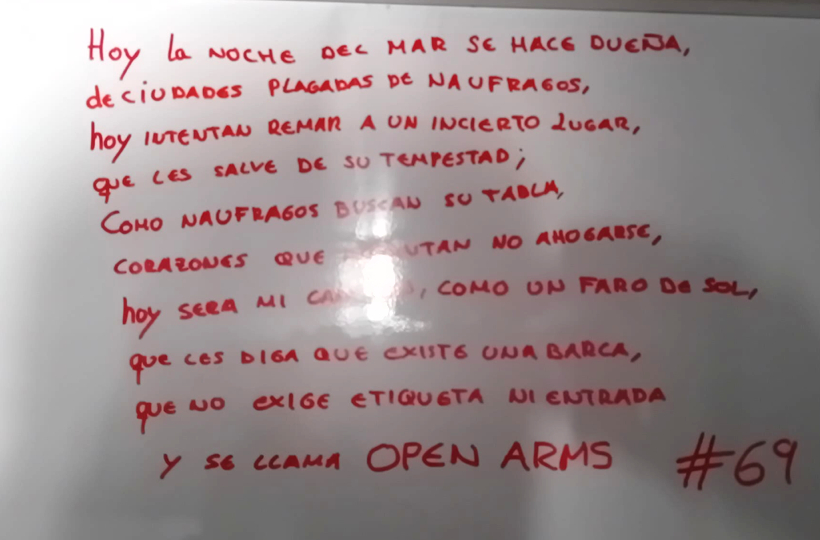 Hoy la NOCHE DEL MAR SE HACE DUEÑA,
de CIUDADES PLAGADAS DE NAUFRAGOS,
hoy INTENTAN REMAR A UN INCIERTO LUGAR,
que LES SALVE DE SU TEMPESTAD;
COMO NAUFRAGOS BUSCAN SU TABLA,
CORAZONES QUE NO AHOGARSE,
hoy SERA MI , COMO UN FARO DE SOL,
que LES DIGA QUE EXISTE UNA BARCA,
que NO EXIGE ETIQUETA NI ENTRADA
Y SE LLAMA OPEN ARMS #69